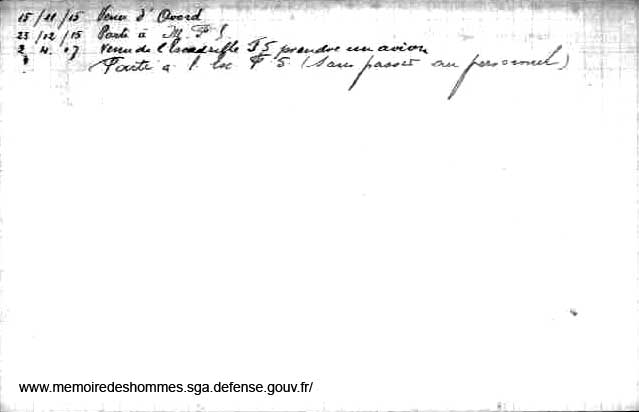 15/11/15 Venu d'Avord
23/12/15 Parti à M.F 5
2 4 17 Venu de l'Escadrille F5 prendre un avion
? Parti à l'Esc F.5. (sans passer au personnel)
www.memoiredeshommes.sga.defense.gouv.fr/